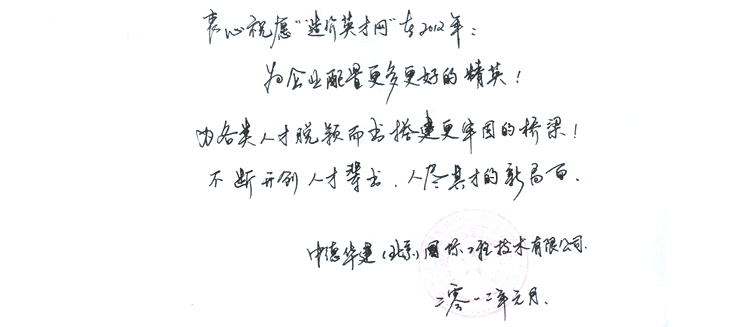 衷心祝愿“造价英才网”在2012年：
为企业配置更多更好的精英！
为各类人才脱颖而出搭建更牢固的桥梁！
不断开创人才辈出、人尽其才的新局面.
中德华建（北京）国际工程技术有限公司.
二零一二年元月.